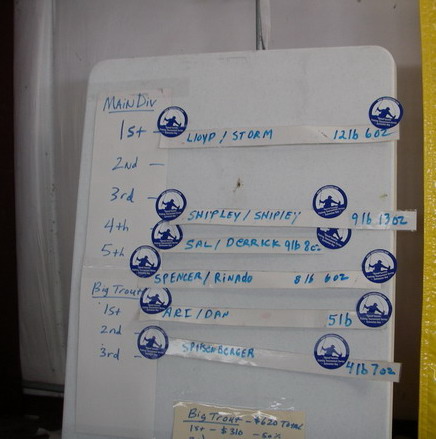 MAIN DIV
1st — LLOYD / STORM 12 lb 6 oz
2nd —
3rd
SHIPLEY / SHIPLEY 9 lb 13 oz
4th
SAL / DERRICK 9 lb 8 oz
5th
SPENCER / RINADO 8 lb 6 oz
Big Trout
1st ARI / DAN 5 lb
2nd
3rd — 4 lb 7 oz
Big Trout - $620 Total
1st - $310 - 50%